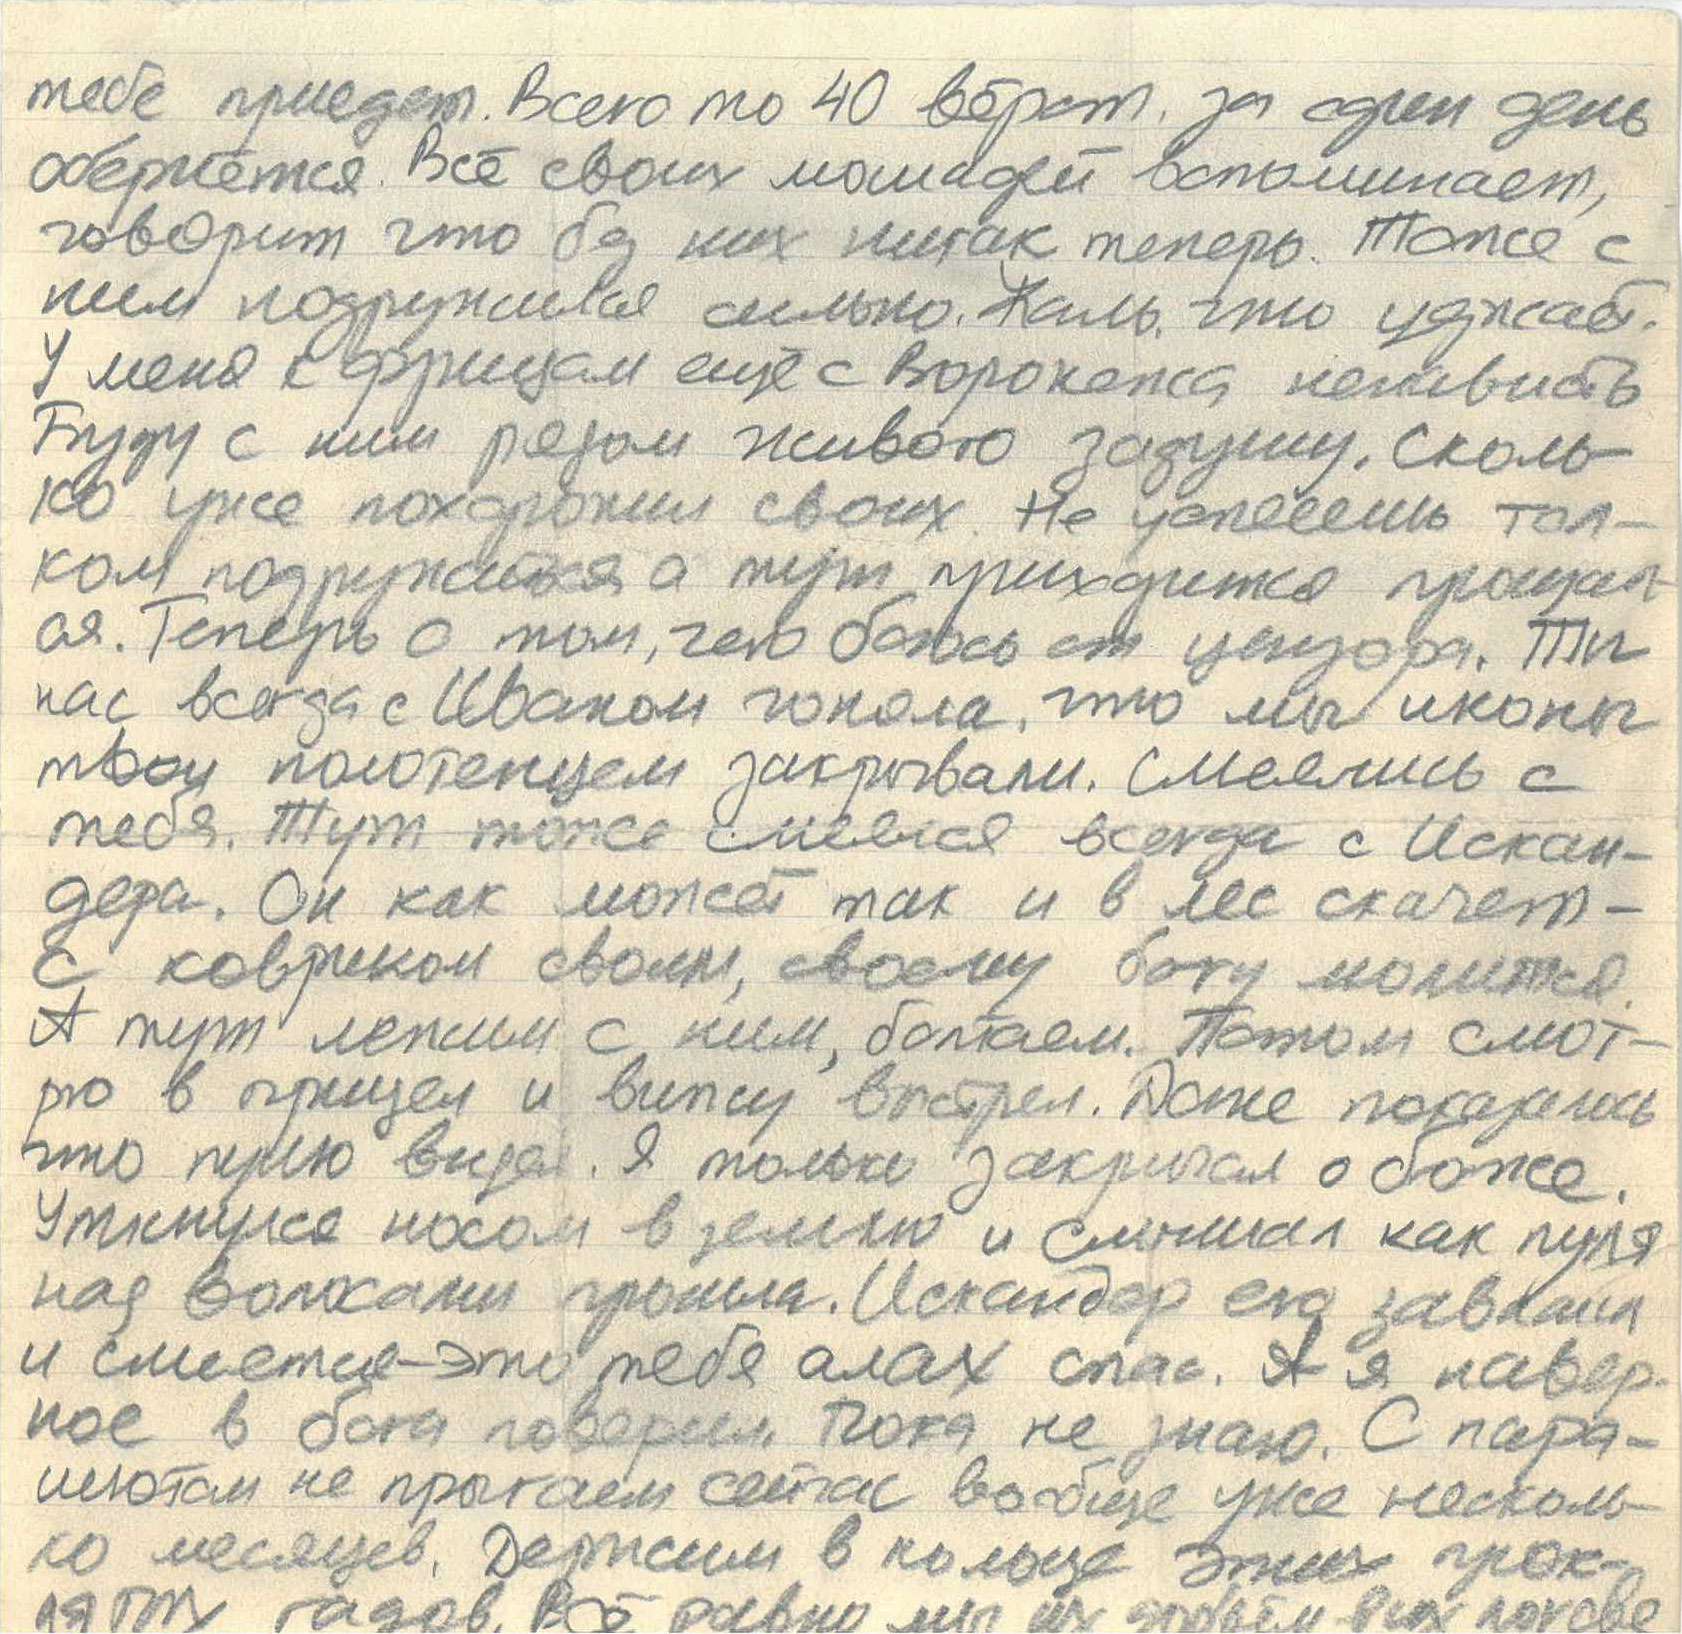 тебе приедет. Всего то 40 вёрст. за один день
обернётся. Всё своих лошадей вспоминает,
говорит что без них никак теперь. Тоже с
ним подружился сильно. Жаль, что уезжает.
У меня к фрицам ещё с Воронежа ненависть
Буду с ним рядом живого задушу. Сколь-
ко уже похоронил своих. Не успеешь тол-
ком подружится а тут приходится прощат-
ся. Теперь о том, чего боюсь от цензора. Ты
нас всегда с Иваном гоняла, что мы иконы
твои полотенцем закрывали. Смеялись с
тебя. Тут тоже смеялся всегда с Искан-
дера. Он как может так и в лес скачет-
с ковриком своим, своему богу молится.
А тут лежим с ним, болтаем. Потом смот-
рю в прицел и вижу выстрел. Даже показалось
что пулю видел. Я только закричал о боже.
Уткнулся носом в землю и слышал как пуля
над волосами прошла. Искандер его завалил
и смеется-это тебя алах спас. А я навер-
ное в бога поверил. Пока не знаю. С пара-
шютом не прыгаем сейчас вообще уже несколь-
ко месяцев. Держим в кольце этих прок-
лятых гадов. Всё равно мы их добьём в их логове